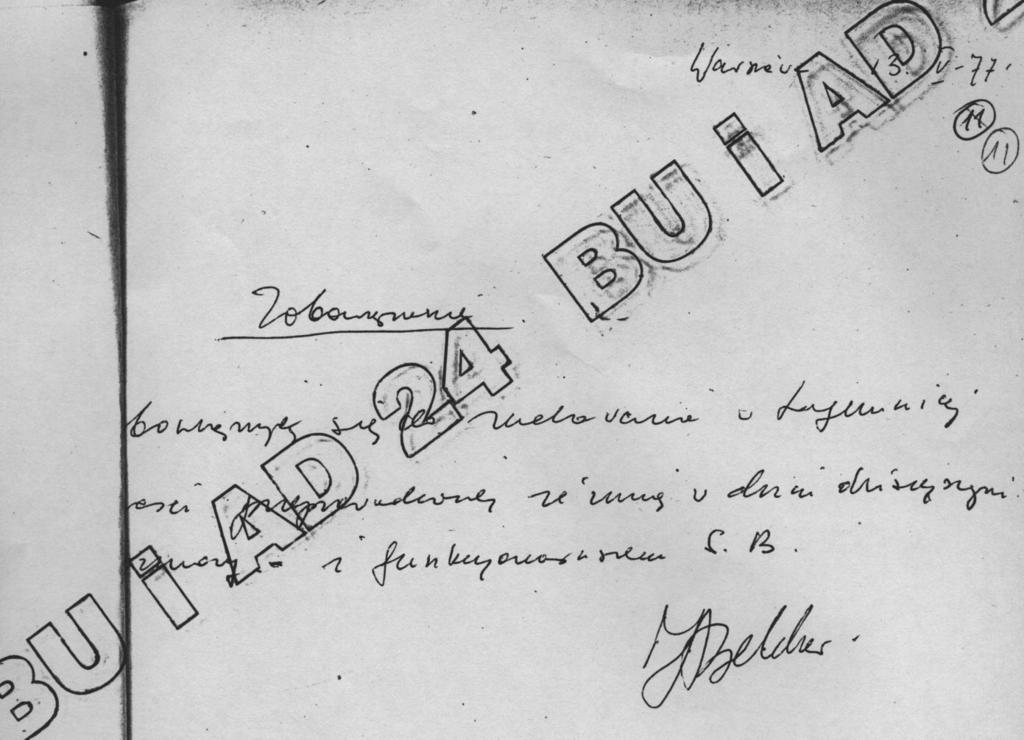 Warszawa 13. V-77.
11
11
Zobowiązanie
bowiązuję się do zachowania w tajemnicy
ości przeprowadzonej ze mną w dniu dzisiejszym
rozmowy - z funkcjonariuszem S. B.
BU i AD 24 BU i AD 2